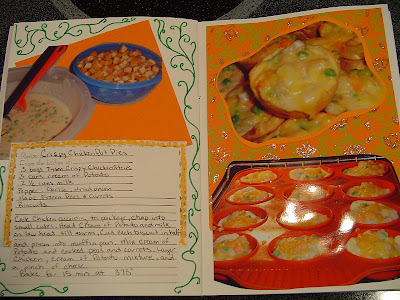 Crispy Chicken Pot Pies
3 bags Tyson Crispy Chicken Strips
3 cans cream of Potato
2 ½ cans milk
Pepper, Garlic,
16oz Frozen Peas & Carrots
Biscuits
Cook Chicken according to package, chop into
small cubes. Heat Cream of Potato and milk
on low heat till warm. Cut each biscuit in half
and press into muffin pan. Mix cream of
Potato and cooked peas and carrots. Layer
Chicken, cream of Potato mixture, and
a pinch of cheese.
Bake for 15 min at 375°